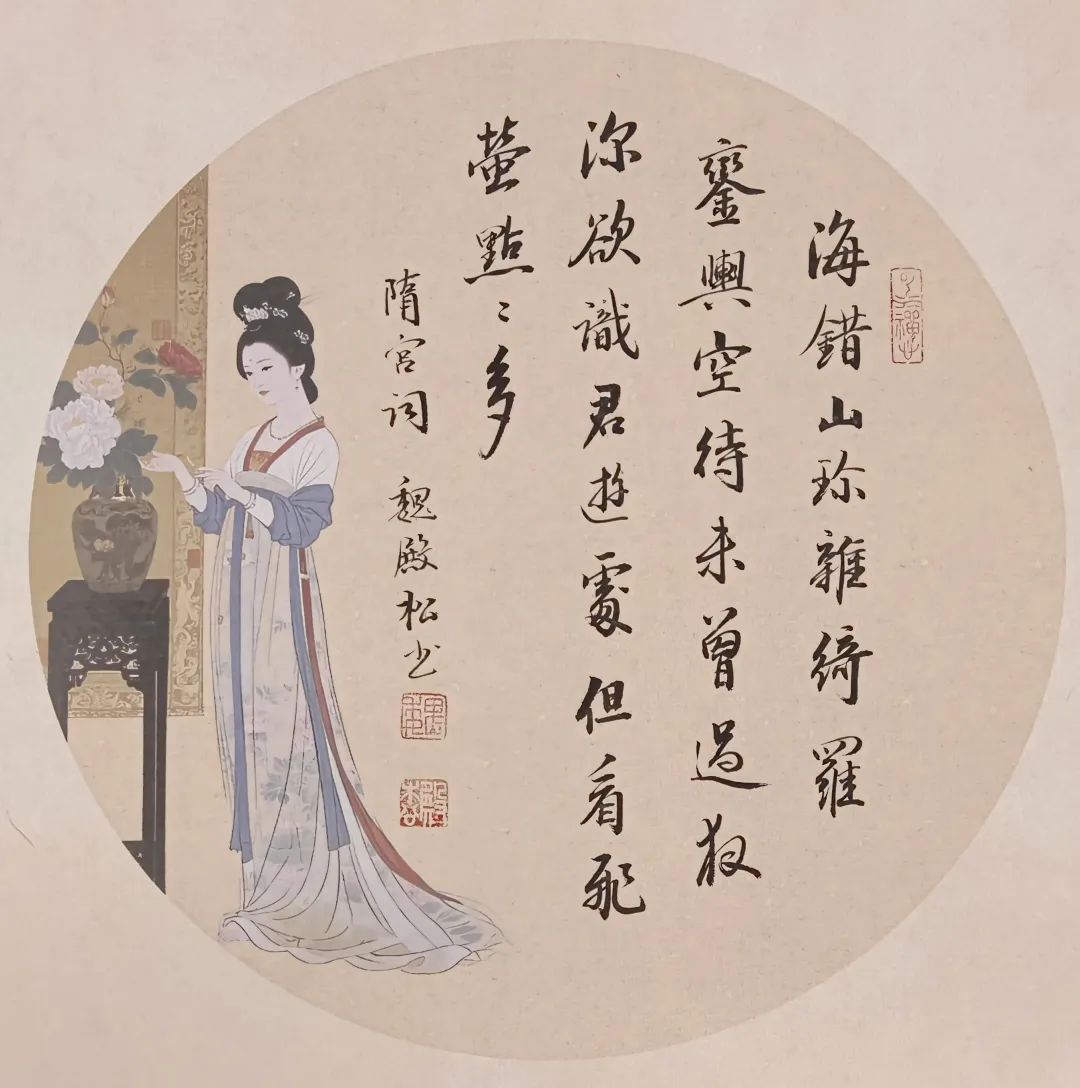 海錯山珍雜綺羅
鑾輿空待未曾過夜
深欲識君遊處但看飛
螢點〻多
隋宮词 魏殿松书